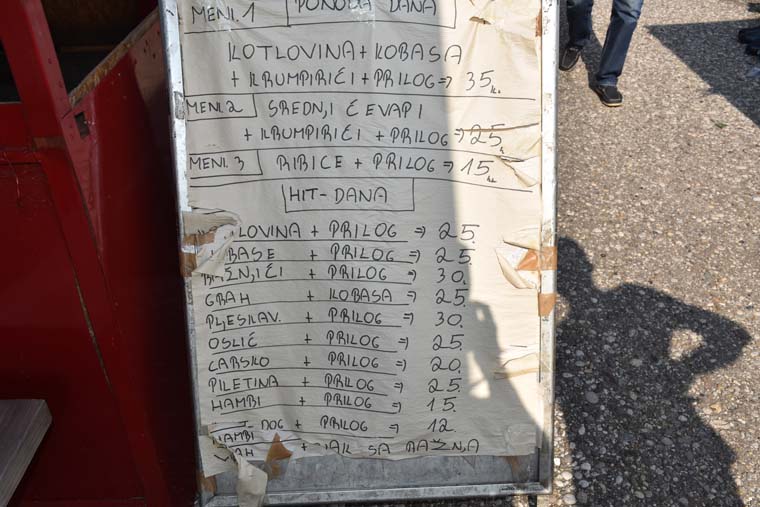 MENI. 1 PONUDA DANA
KOTLOVINA + KOBASA
+ KRUMPIRIĆI + PRILOG => 35.
MENI. 2 SREDNJI ĆEVAPI
+ KRUMPIRIĆI + PRILOG => 25.
MENI. 3 RIBICE + PRILOG => 15.
HIT-DANA
LOVINA + PRILOG => 25.
BASE + PRILOG => 25.
RAŽNJIĆI + PRILOG => 30.
GRAH + KOBASA => 25.
PLJESKAV. + PRILOG => 30.
OSLIĆ + PRILOG => 25.
CARSKO + PRILOG => 20.
PILETINA + PRILOG => 25.
HAMBI + PRILOG => 15.
DOG + PRILOG => 12.
SA RAŽNJA